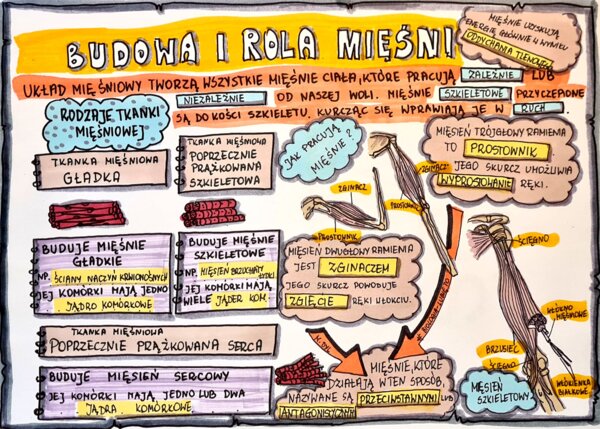 BUDOWA I ROLA MIĘŚNI
MIĘŚNIE UZYSKUJĄ
ENERGIĘ GŁÓWNIE Z WYNIKU
ODDYCHANIA TLENOWEGO
UKŁAD MIĘŚNIOWY TWORZĄ WSZYSTKIE MIĘŚNIE CIAŁA, KTÓRE PRACUJĄ ZALEŻNIE LUB
NIEZALEŻNIE OD NASZEJ WOLI. MIĘŚNIE SZKIELETOWE PRZYCZEPIONE
SĄ DO KOŚCI SZKIELETU. KURCZĄC SIĘ WPRAWIAJĄ JE W RUCH.
RODZAJE TKANKI
MIĘŚNIOWEJ
TKANKA MIĘŚNIOWA
GŁADKA
TKANKA MIĘŚNIOWA
POPRZECZNIE
PRĄŻKOWANA
SZKIELETOWA
BUDUJE MIĘŚNIE
GŁADKIE
NP. ŚCIANY NACZYŃ KRWIONOŚNYCH
JEJ KOMÓRKI MAJĄ JEDNO
JĄDRO KOMÓRKOWE
BUDUJE MIĘŚNIE
SZKIELETOWE
NP. MIĘSIEŃ BRZUCHATY ŁYDKI
JEJ KOMÓRKI MAJĄ
WIELE JĄDER KOM.
TKANKA MIĘŚNIOWA
POPRZECZNIE PRĄŻKOWANA SERCA
BUDUJE MIĘSIEŃ SERCOWY
JEJ KOMÓRKI MAJĄ JEDNO LUB DWA
JĄDRA KOMÓRKOWE.
JAK PRACUJĄ
MIĘŚNIE?
ZGINACZ
PROSTOWNIK
ZGINACZ
PROSTOWNIK
MIĘSIEŃ TRÓJGŁOWY RAMIENIA
TO PROSTOWNIK
JEGO SKURCZ UMOŻLIWIA
WYPROSTOWANIE RĘKI.
MIĘSIEŃ DWUGŁOWY RAMIENIA
JEST ZGINACZEM
JEGO SKURCZ POWODUJE
ZGIĘCIE RĘKI W ŁOKCIU.
MIĘŚNIE, KTÓRE
DZIAŁAJĄ W TEN SPOSÓB,
NAZYWANE SĄ PRZECIWSTAWNYMI LUB
ANTAGONISTYCZNYMI
ŚCIĘGNO
WŁÓKNO
MIĘŚNIOWE
BRZUSIEC
ŚCIĘGNO
WŁÓKIENKA
BIAŁKOWE
MIĘSIEŃ
SZKIELETOWY